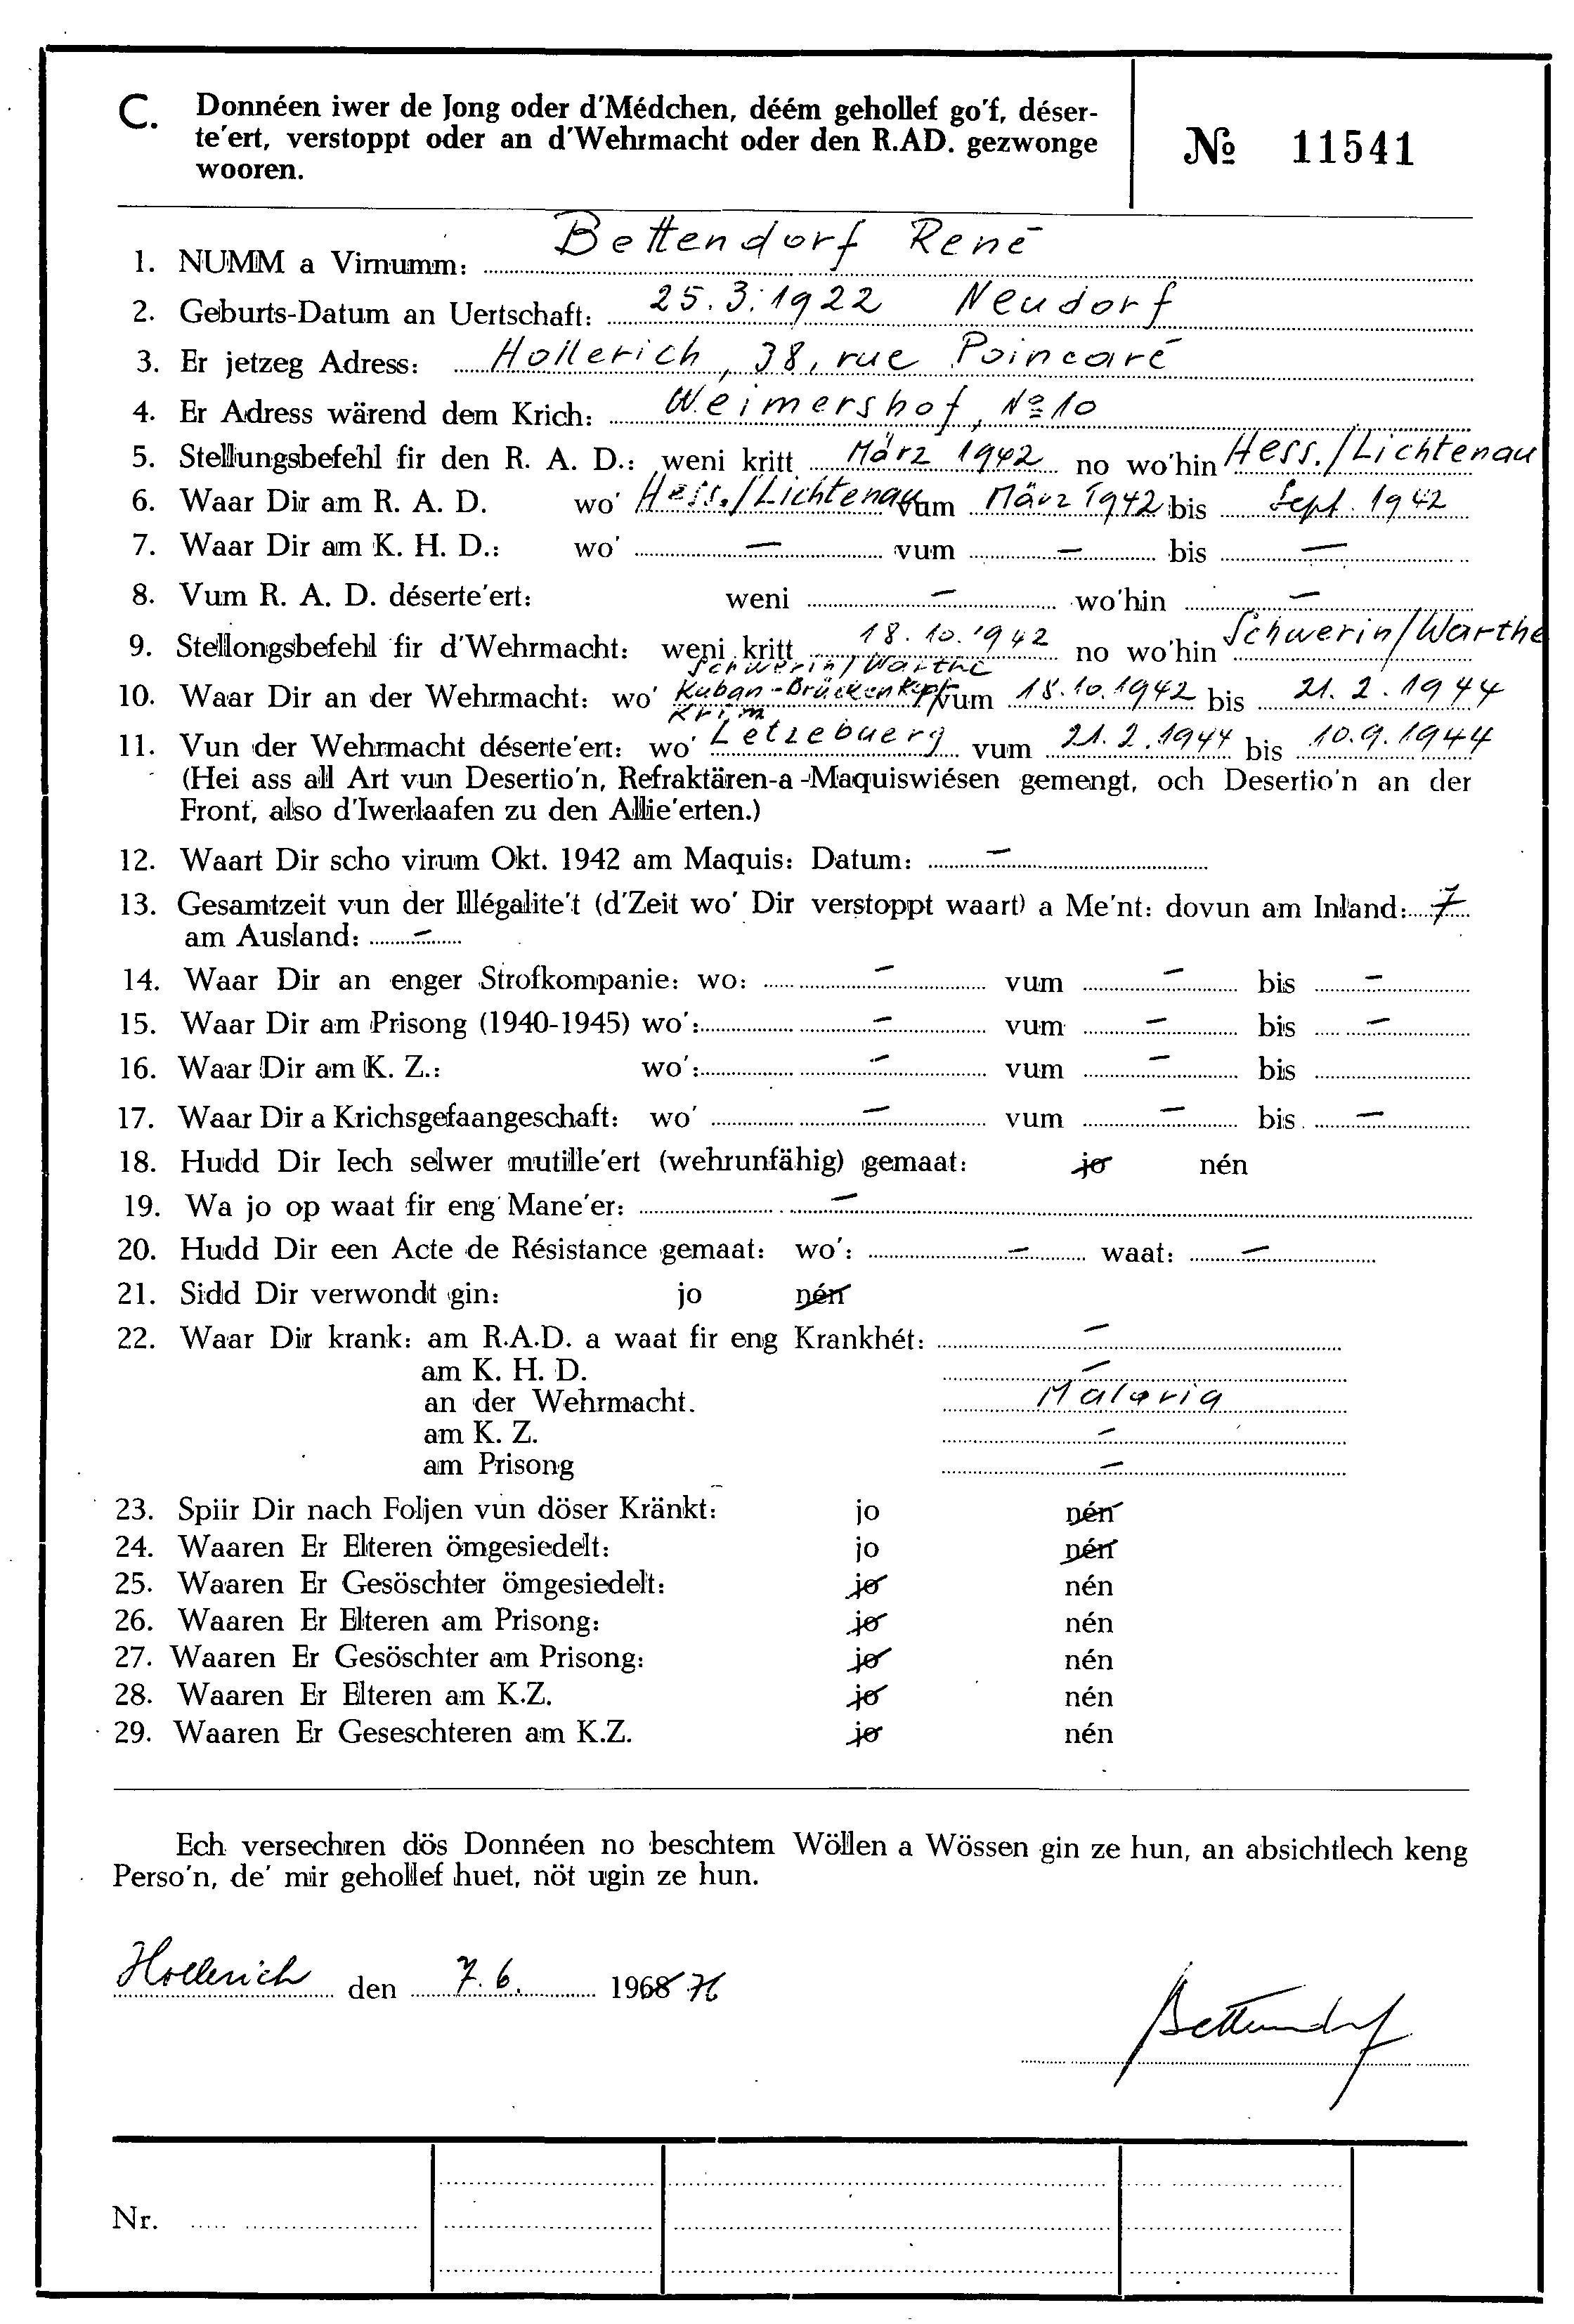 C. Donnéen iwer de Jong oder d'Médchen, déém gehollef go'f, déser-
te'ert, verstoppt oder an d'Wehrmacht oder den R.AD. gezwonge
wooren.
№ 11541
1. NUMM a Virnumm: Bettendorf René
2. Geburts-Datum an Uertschaft: 25.3.1922 Neudorf
3. Er jetzeg Adress: Hollerich, 38, rue Poincaré
4. Er Adress wärend dem Krich: Weimershof, № 10
5. Stellungsbefehl fir den R. A. D.: weni kritt März 1942 no wo'hin Hess./Lichtenau
6. Waar Dir am R. A. D. wo' Hess./Lichtenau vum März 1942 bis Sept. 1942
7. Waar Dir am K. H. D.: wo' — vum — bis —
8. Vum R. A. D. déserte'ert: weni — wo'hin —
9. Stellongsbefehl fir d'Wehrmacht: weni kritt 18.10.1942 no wo'hin Schwerin/Warthe
Schwerin/Warthe
10. Waar Dir an der Wehrmacht: wo' Kuban-Brückenkopf vum 18.10.1942 bis 21.2.1944
Krim
11. Vun der Wehrmacht déserte'ert: wo' Letzebuerg vum 21.2.1944 bis 10.9.1944
(Hei ass all Art vun Desertio'n, Refraktären-a-Maquiswiésen gemengt, och Desertio'n an der
Front, also d'Iwerlaafen zu den Allie'erten.)
12. Waart Dir scho virum Okt. 1942 am Maquis: Datum: —
13. Gesamtzeit vun der Illégalite't (d'Zeit wo' Dir verstoppt waart) a Me'nt: dovun am Inland: 7
am Ausland: —
14. Waar Dir an enger Strofkompanie: wo: — vum — bis —
15. Waar Dir am Prisong (1940-1945) wo': — vum — bis —
16. Waar Dir am K. Z.: wo': — vum — bis
17. Waar Dir a Krichsgefaangeschaft: wo' — vum — bis —
18. Hudd Dir Iech selwer mutille'ert (wehrunfähig) gemaat: jo nén
19. Wa jo op waat fir eng Mane'er: —
20. Hudd Dir een Acte de Résistance gemaat: wo': — waat: —
21. Sidd Dir verwondt gin: jo nén
22. Waar Dir krank: am R.A.D. a waat fir eng Krankhét: —
am K. H. D. —
an der Wehrmacht. Malaria
am K. Z. —
am Prisong —
23. Spiir Dir nach Foljen vun döser Kränkt: jo nén
24. Waaren Er Elteren ömgesiedelt: jo nén
25. Waaren Er Gesöschter ömgesiedelt: jo nén
26. Waaren Er Elteren am Prisong: jo nén
27. Waaren Er Gesöschter am Prisong: jo nén
28. Waaren Er Elteren am K.Z. jo nén
29. Waaren Er Geseschteren am K.Z. jo nén
Ech versechren dös Donnéen no beschtem Wöllen a Wössen gin ze hun, an absichtlech keng
Perso'n, de' mir gehollef huet, nöt ugin ze hun.
Hollerich den 7.6. 1968 71
Bettendorf
Nr.